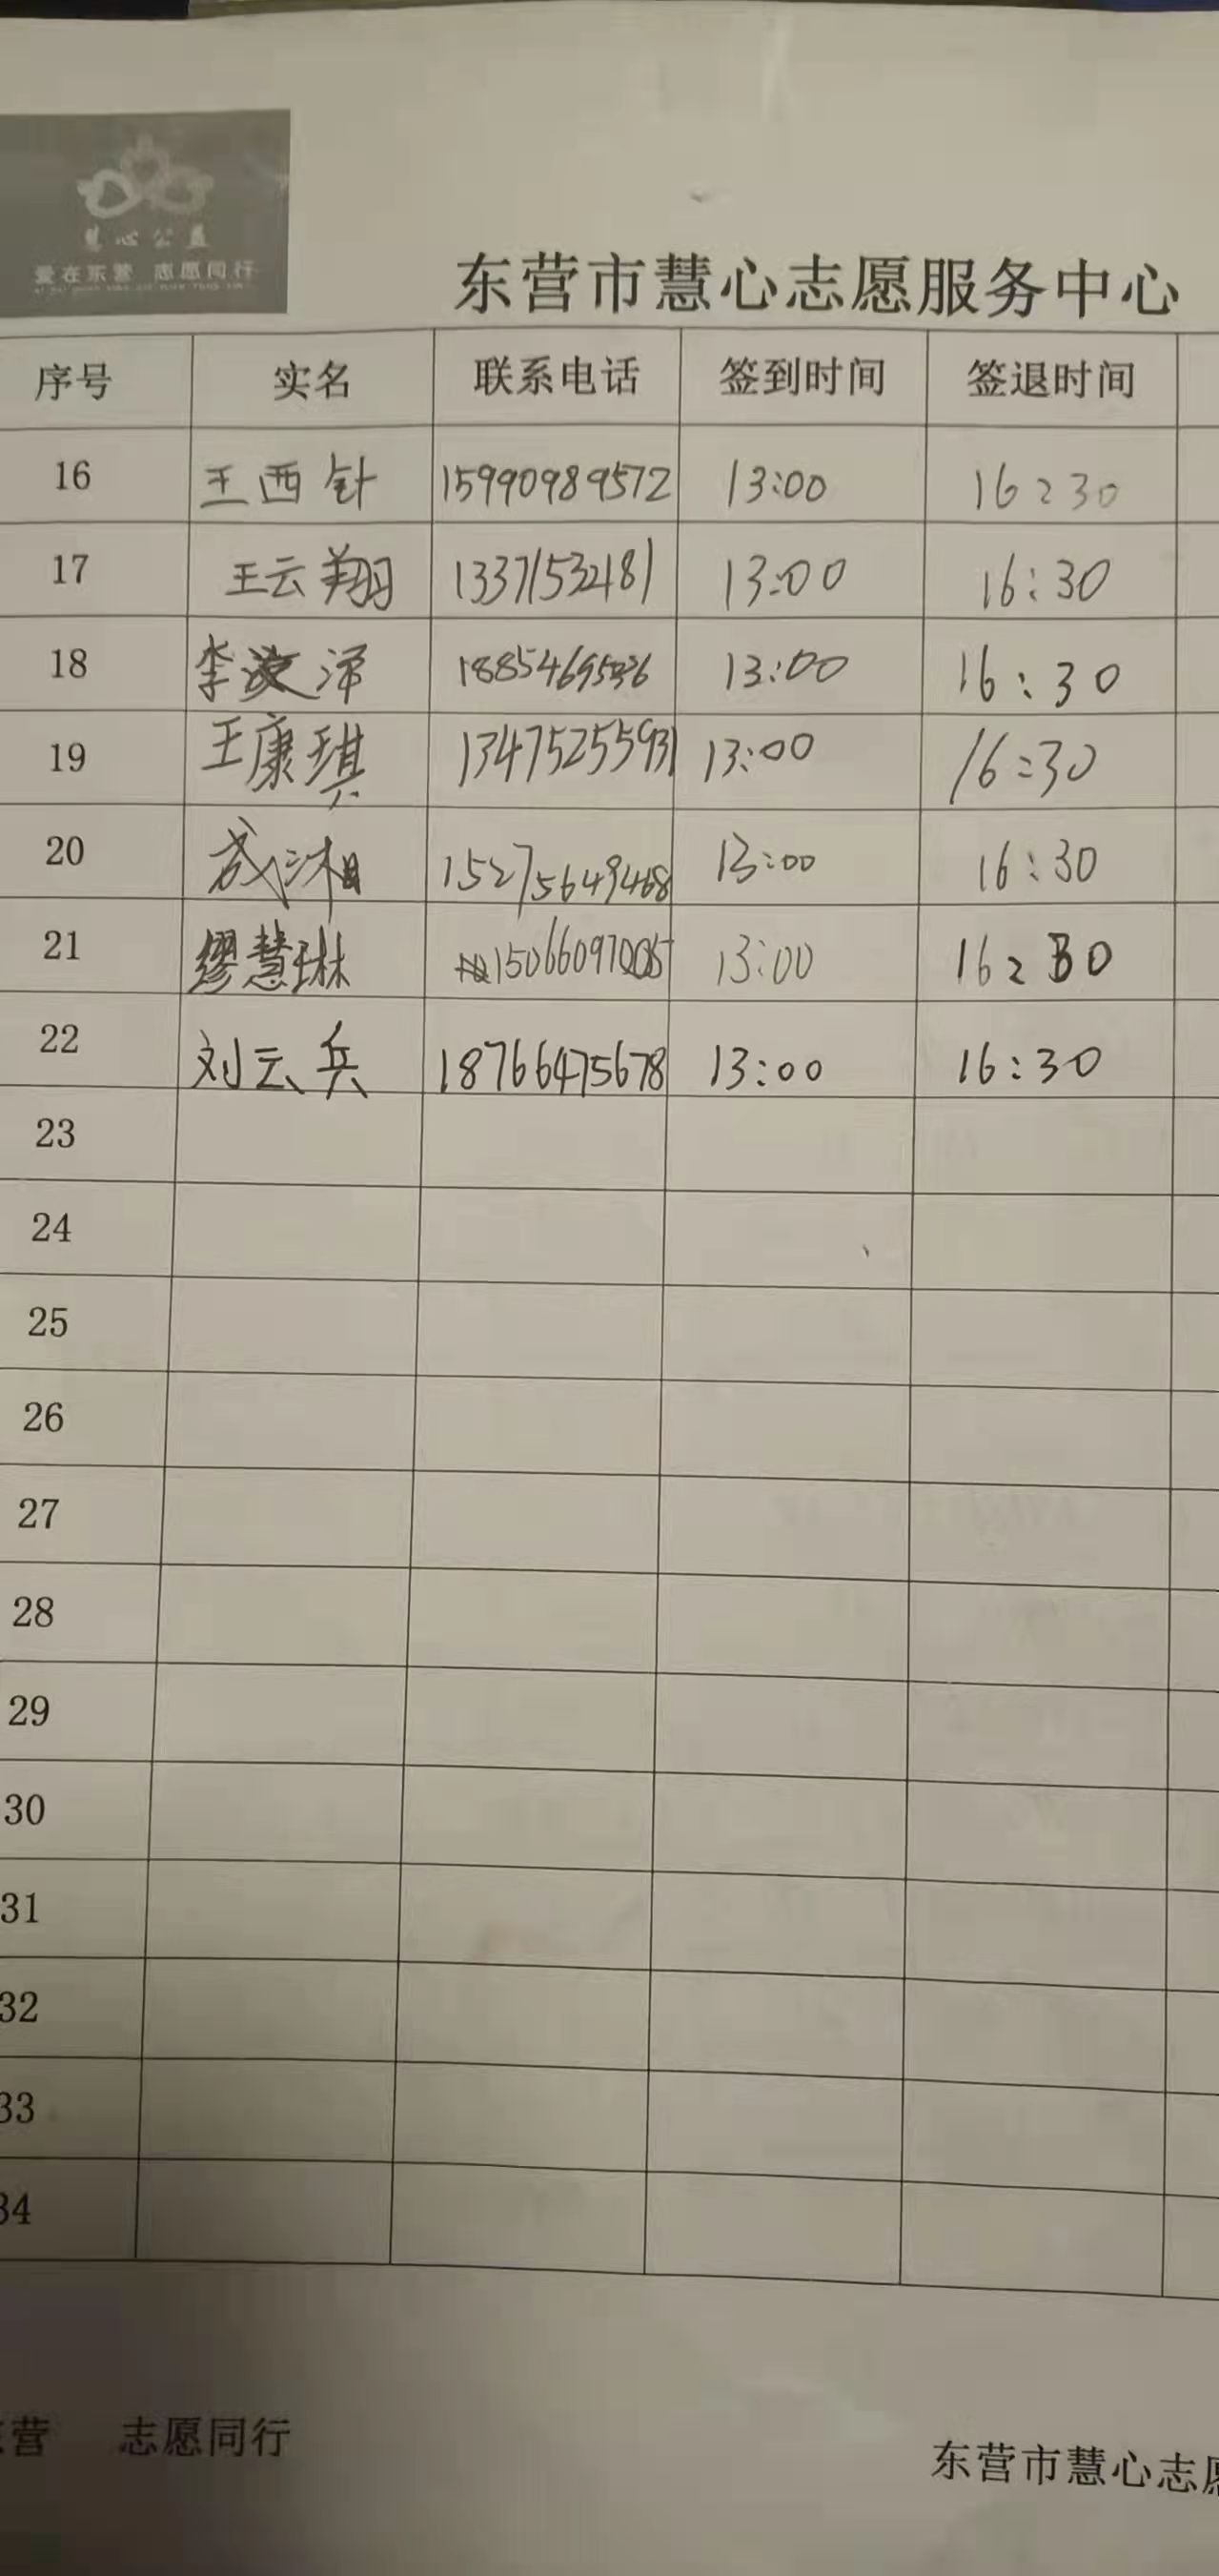 慧心公益
爱在东营 志愿同行
东营市慧心志愿服务中心
序号 实名 联系电话 签到时间 签退时间
16 王西针 15990989572 13:00 16:30
17 王云翔 13371532181 13:00 16:30
18 李 泽 13:00 16:30
19 王康琪 13475255931 13:00 16:30
20 成沐 15275649468 13:00 16:30
21 缪慧琳 15066097005 13:00 16:30
22 刘云兵 18766475678 13:00 16:30
23
24
25
26
27
28
29
30
31
32
33
34
营 志愿同行
东营市慧心志愿